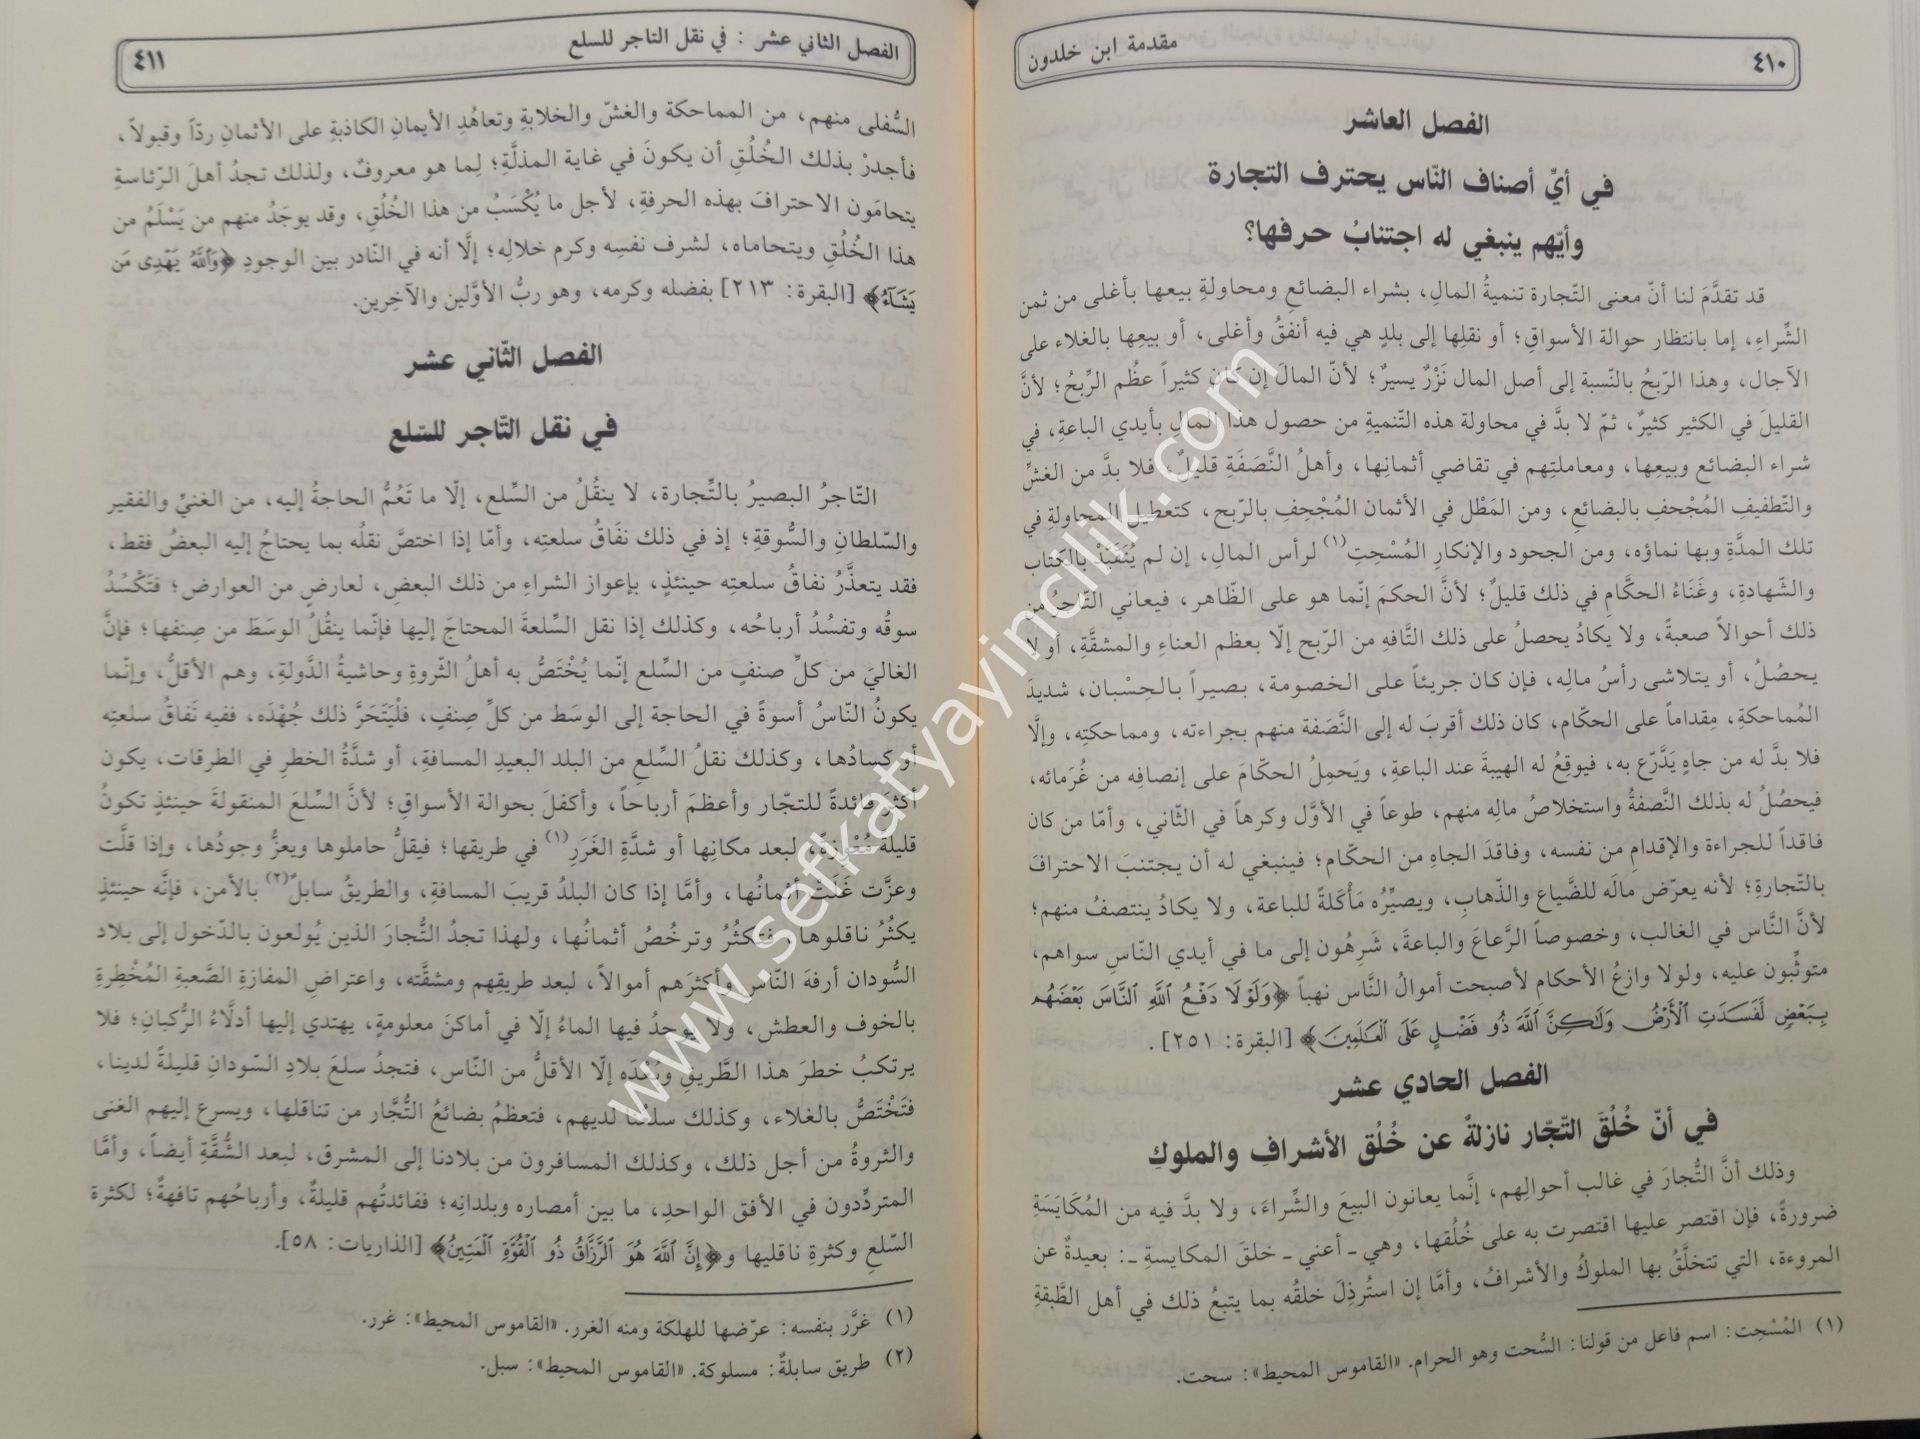 ٤١٠
مقدمة ابن خلدون
الفصل العاشر
في أيِّ أصناف النّاس يحترف التجارة
وأيّهم ينبغي له اجتنابُ حرفها؟
قد تقدَّمَ لنا أنّ معنى التّجارة تنميةُ المالِ، بشراء البضائعِ ومحاولةِ بيعها بأغلى من ثمن
الشِّراءِ، إما بانتظار حوالة الأسواقِ؛ أو نقلِها إلى بلدٍ هي فيه أنفقُ وأغلى، أو بيعِها بالغلاء على
الآجال، وهذا الرّبحُ بالنّسبة إلى أصل المال نَزْرٌ يسيرٌ؛ لأنّ المالَ إن كان كثيراً عظُم الرِّبحُ؛ لأنَّ
القليلَ في الكثير كثيرٌ، ثمّ لا بدَّ في محاولة هذه التّنميةِ من حصول هذا المال بأيدي الباعةِ، في
شراء البضائع وبيعِها، ومعاملتِهم في تقاضي أثمانِها، وأهلُ النَّصَفَةِ قليلٌ، فلا بدَّ من الغشِّ
والتّطفيفِ المُجْحفِ بالبضائعِ، ومن المَطْل في الأثمان المُجْحِفِ بالرّبح، كتعطيل المحاولةِ في
تلك المدَّةِ وبها نماؤه، ومن الجحود والإنكارِ المُسْحِتِ(١) لرأس المالِ، إن لم يُتَقَيَّدْ بالكتاب
والشّهادةِ، وغَنَاءُ الحكَّامِ في ذلك قليلٌ؛ لأنَّ الحكمَ إنّما هو على الظّاهر، فيعاني التّاجرُ من
ذلك أحوالاً صعبةً، ولا يكادُ يحصلُ على ذلك التَّافهِ من الرّبح إلّا بعظم العناءِ والمشقَّةِ، أو لا
يحصُلُ، أو يتلاشى رأسُ مالِه، فإن كان جريئاً على الخصومة، بصيراً بالحِسْبان، شديدَ
المُماحكةِ، مِقداماً على الحكّام، كان ذلك أقربَ له إلى النَّصَفة منهم بجراءته، ومماحكتِه، وإلَّا
فلا بدَّ له من جاهٍ يَدَّرّع به، فيوقِعُ له الهيبةَ عند الباعةِ، ويَحمِلُ الحكّامَ على إنصافِه من غُرَمائه،
فيحصُلُ له بذلك النَّصفةُ واستخلاصُ مالِه منهم، طوعاً في الأوَّل وكرهاً في الثّاني، وأمّا من كان
فاقداً للجراءة والإقدامِ من نفسه، وفاقدَ الجاهِ من الحكّام؛ فينبغي له أن يجتنبَ الاحترافَ
بالتّجارةِ؛ لأنه يعرّض مالَه للضَّياع والذّهابِ، ويصيِّرُه مَأْكَلةً للباعة، ولا يكادُ ينتصفُ منهم؛
لأنَّ النَّاس في الغالب، وخصوصاً الرَّعاعَ والباعةَ، شَرِهُون إلى ما في أيدي النّاسِ سواهم،
متوثِّبون عليه، ولولا وازعُ الأحكامِ لأصبحت أموالُ النَّاس نهباً ﴿وَلَوْلَا دَفْعُ اللَّهِ النَّاسَ بَعْضَهُم
بِبَعْضٍ لَفَسَدَتِ الْأَرْضُ وَلَكِنَّ اللَّهَ ذُو فَضْلٍ عَلَى الْعَالَمِينَ﴾ [البقرة: ٢٥١].
الفصل الحادي عشر
في أنّ خُلُقَ التّجّار نازلةٌ عن خُلُق الأشرافِ والملوكِ
وذلك أنَّ التُّجارَ في غالب أحوالِهم، إنَّما يعانون البيعَ والشِّراءَ، ولا بدَّ فيه من المُكَايَسَةِ
ضرورةً، فإن اقتصر عليها اقتصرت به على خُلُقها، وهي ـ أعني ـ خلقَ المكايسةِ ـ: بعيدةٌ عن
المروءة، التي تتخلَّقُ بها الملوكُ والأشرافُ، وأمَّا إن استُرذِلَ خلقُه بما يتبعُ ذلك في أهل الطَّبقةِ
(١) المُسْحِت: اسم فاعل من قولنا: السُّحت وهو الحرام. «القاموس المحيط»: سحت.
الفصل الثاني عشر : في نقل التاجر للسلع
٤١١
السُّفلى منهم، من المماحكة والغشّ والخلابةِ وتعاهُدِ الأيمانِ الكاذبةِ على الأثمانِ ردّاً وقبولاً،
فأجدرْ بذلك الخُلُقِ أن يكونَ في غاية المذلَّةِ؛ لِما هو معروفٌ، ولذلك تجدُ أهلَ الرّئاسةِ
يتحامَون الاحترافَ بهذه الحرفةِ، لأجل ما يُكْسَبُ من هذا الخُلُقِ، وقد يوجَدُ منهم من يَسْلَمُ من
هذا الخُلُقِ ويتحاماه، لشرف نفسِه وكرم خلالِه؛ إلَّا أنه في النّادر بين الوجودِ ﴿وَاللَّهُ يَهْدِى مَن
يَشَاءُ﴾ [البقرة: ٢١٣] بفضله وكرمه، وهو ربُّ الأوَّلين والآخِرين.
الفصل الثّاني عشر
في نقل التّاجر للسّلع
التّاجرُ البصيرُ بالتِّجارة، لا ينقُلُ من السِّلع، إلّا ما تَعُمُّ الحاجةُ إليه، من الغنيِّ والفقير
والسّلطانِ والسُّوقةِ؛ إذ في ذلك نفَاقُ سلعتِه، وأمّا إذا اختصَّ نقلُه بما يحتاجُ إليه البعضُ فقط،
فقد يتعذَّرُ نفاقُ سلعتِه حينئذٍ، بإعواز الشراءِ من ذلك البعضِ، لعارضٍ من العوارض؛ فتَكْسُدُ
سوقُه وتفسُدُ أرباحُه، وكذلك إذا نقل السِّلعةَ المحتاجَ إليها فإنّما ينقُلُ الوسَطَ من صِنفها؛ فإنَّ
الغاليَ من كلِّ صنفٍ من السِّلع إنّما يُخْتَصُّ به أهلُ الثّروةِ وحاشيةُ الدَّولةِ، وهم الأقلُّ، وإنّما
يكونُ النّاسُ أسوةً في الحاجة إلى الوسَط من كلِّ صِنفٍ، فلْيَتَحَرَّ ذلك جُهْدَه، ففيه نَفاقُ سلعتِه
أو كسادُها، وكذلك نقلُ السّلعِ من البلد البعيدِ المسافةِ، أو شدَّةُ الخطرِ في الطرقات، يكون
أكثرَ فائدةً للتجّار وأعظمَ أرباحاً، وأكفلَ بحوالة الأسواقِ؛ لأنَّ السِّلعَ المنقولةَ حينئذٍ تكونُ
قليلةً مُعْوِزةً، لبعد مكانِها أو شدَّةِ الغَرَرِ(١) في طريقها؛ فيقلُّ حاملوها ويعزُّ وجودُها، وإذا قلَّت
وعزَّت غَلَتْ أثمانُها، وأمَّا إذا كان البلدُ قريبَ المسافةِ، والطريقُ سابلٌ(٢) بالأمن، فإنَّه حينئذٍ
يكثُرُ ناقلوها، فتكثُرُ وترخُصُ أثمانُها، ولهذا تجدُ التُّجارَ الذين يُولعون بالدّخول إلى بلاد
السُّودان أرفهَ النّاسِ وأكثرَهم أموالاً، لبعد طريقِهم ومشقَّته، واعتراضِ المفازةِ الصَّعبةِ المُخْطِرةِ
بالخوف والعطش، ولا يوجدُ فيها الماءُ إلّا في أماكنَ معلومةٍ، يهتدي إليها أدلَّاءُ الرُّكبانِ؛ فلا
يرتكبُ خطرَ هذا الطَّريقِ وبُعْدَه إلّا الأقلُّ من النّاس، فتجدُ سلعَ بلادِ السّودانِ قليلةً لدينا،
فتَخْتَصُّ بالغلاء، وكذلك سلعُنا لديهم، فتعظمُ بضائعُ التُّجَّار من تناقلها، ويسرع إليهم الغنى
والثروةُ من أجل ذلك، وكذلك المسافرون من بلادنا إلى المشرق، لبعد الشُّقَّةِ أيضاً، وأمَّا
المتردِّدون في الأفق الواحدِ، ما بين أمصاره وبلدانِه؛ ففائدتُهم قليلةٌ، وأرباحُهم تافهةٌ؛ لكثرة
السّلعِ وكثرةِ ناقليها و﴿إِنَّ اللَّهَ هُوَ الرَّزَّاقُ ذُو الْقُوَّةِ الْمَتِينُ﴾ [الذاريات: ٥٨].
(١) غرَّر بنفسه: عرّضها للهلكة ومنه الغرر. «القاموس المحيط»: غرر.
(٢) طريق سابلةٌ: مسلوكة. «القاموس المحيط»: سبل.
www.sefkatyayincilik.com